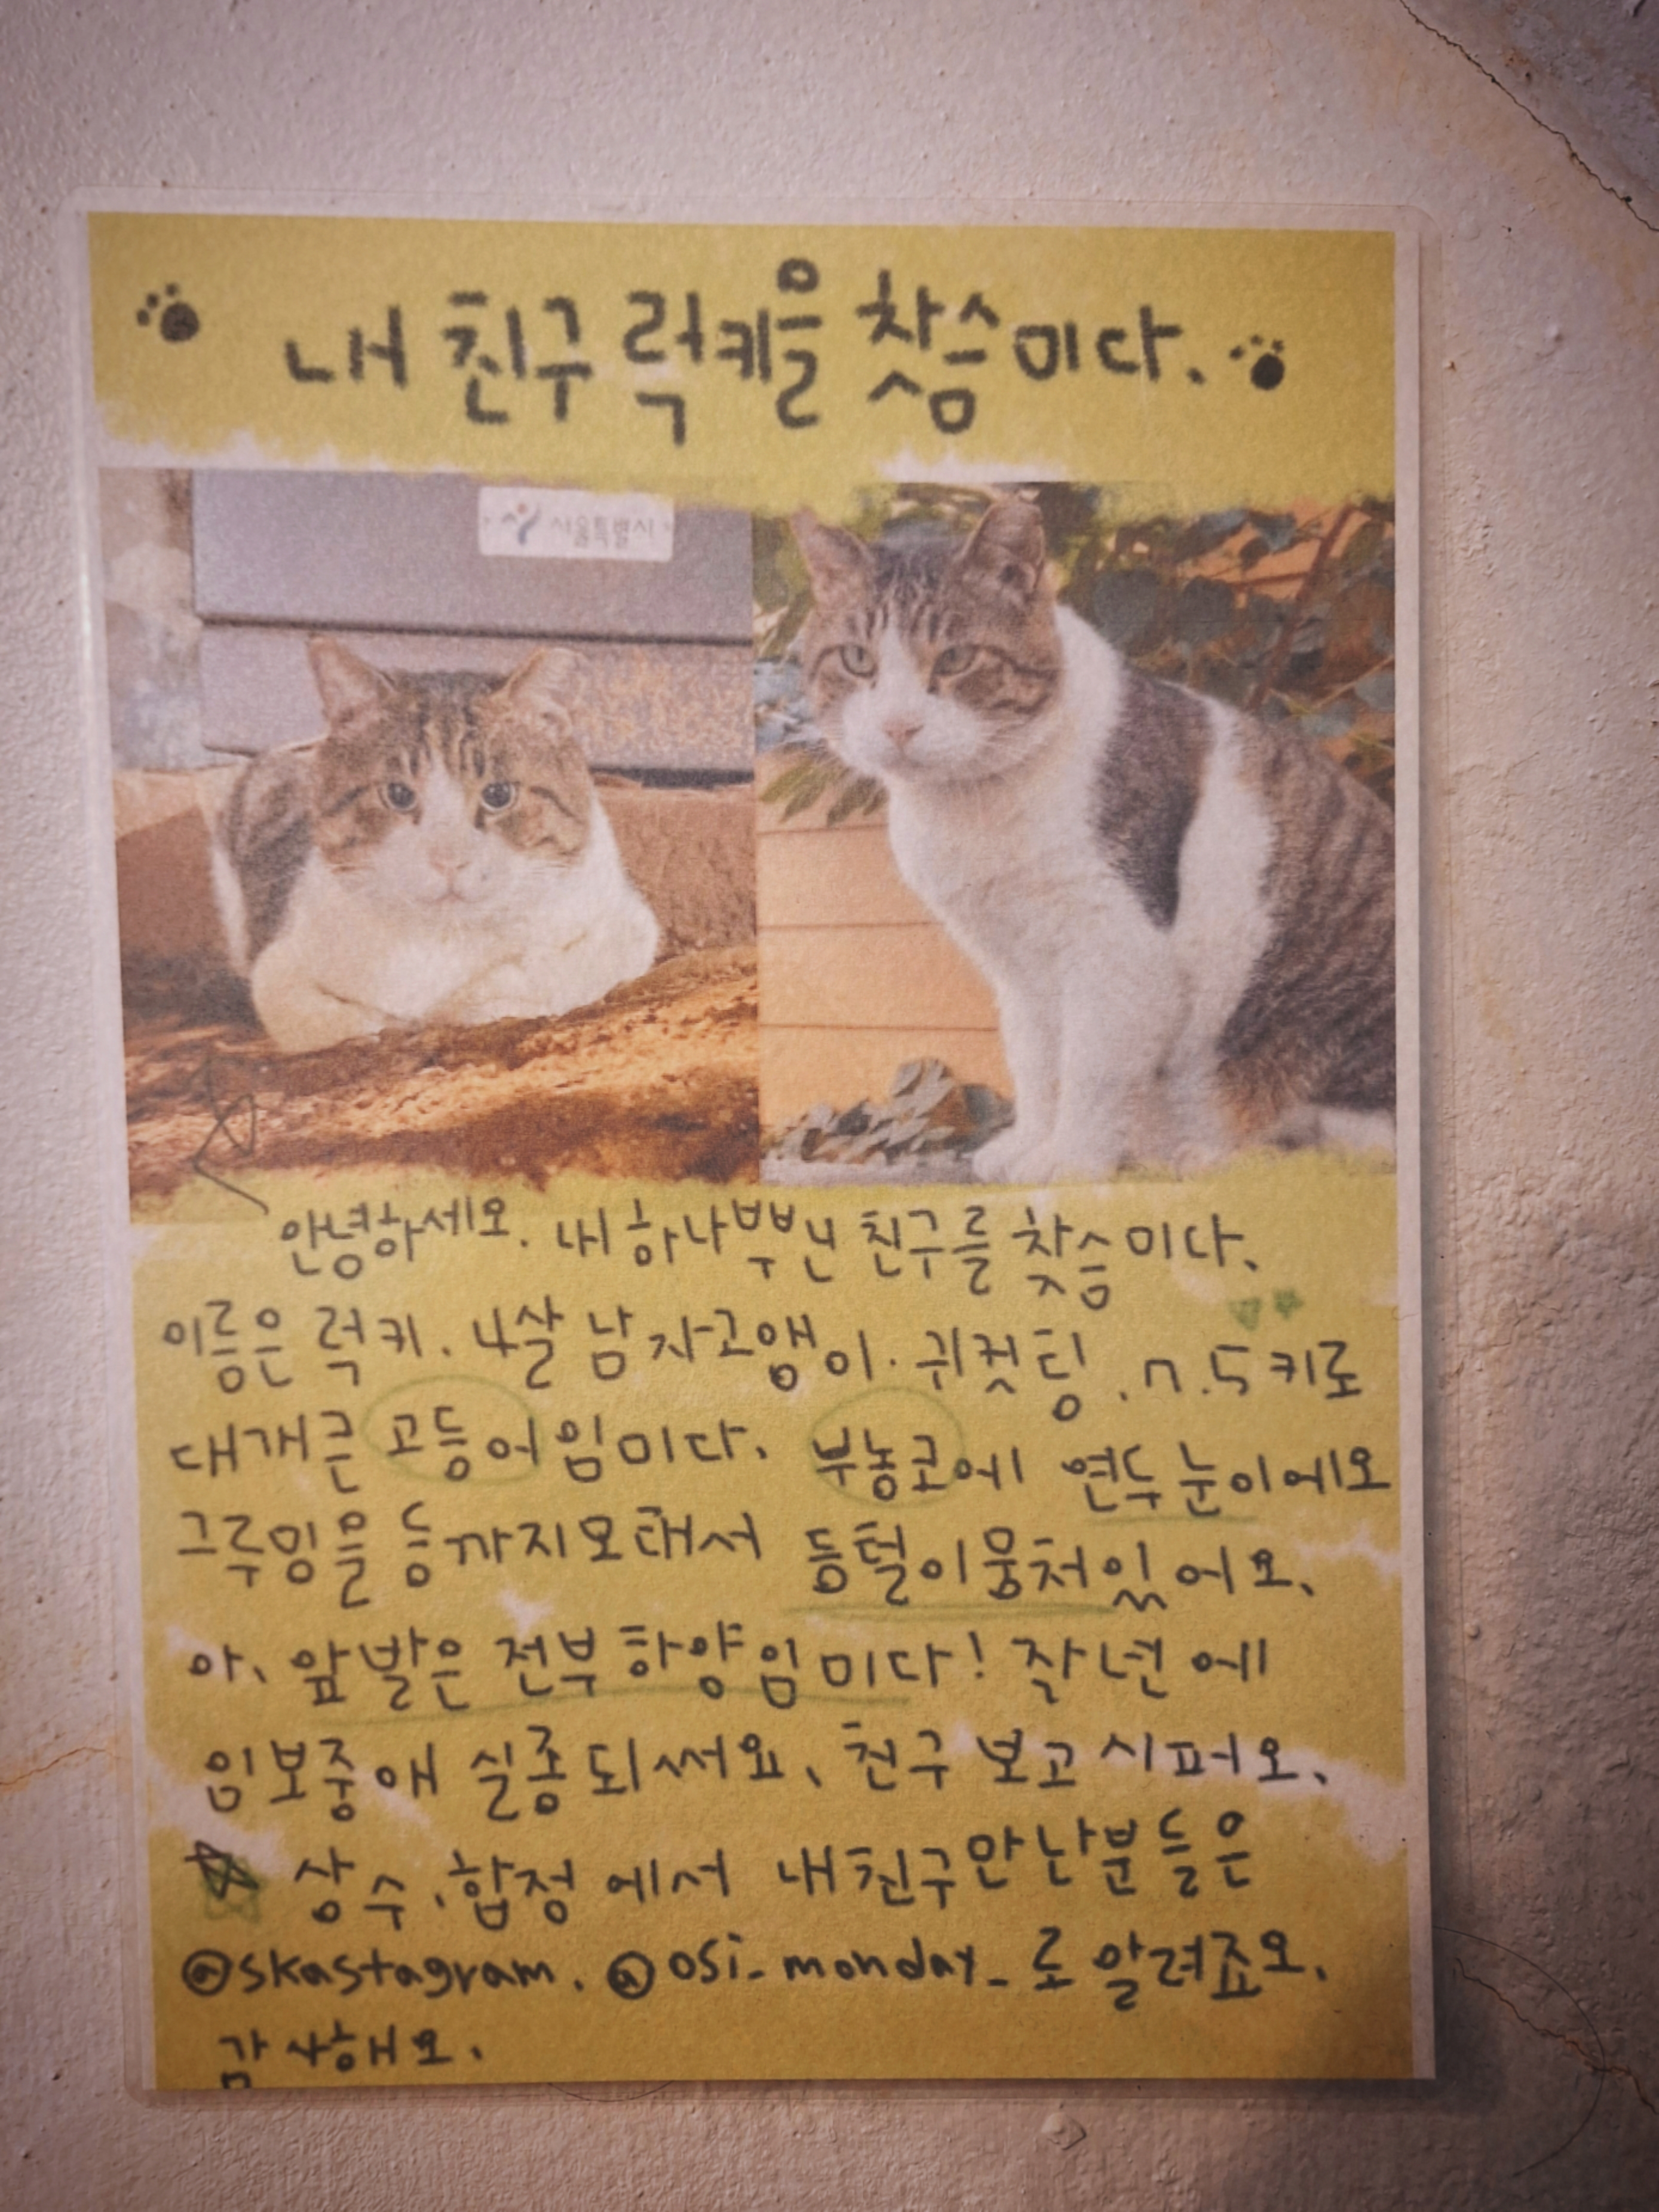 내 친구 럭키를 찾슴미다.
서울특별시
안녕하세요. 내 하나뿐닌 친구를 찾슴미다.
이름은 럭키. 4살 남자고앵이. 귀컷팅. 7.5키로
대개큰 고등어임미다. 부농코에 연두눈이에오
그루밍을 등까지오래서 등털이뭉처있어오.
아. 앞발은 전부하양임미다! 작년에
임보중애 실종되써요. 친구보고시퍼오.
상수.합정에서 내친구만난분들은
@skastagram. @osi_monday_로 알려죠오.
감사해오.